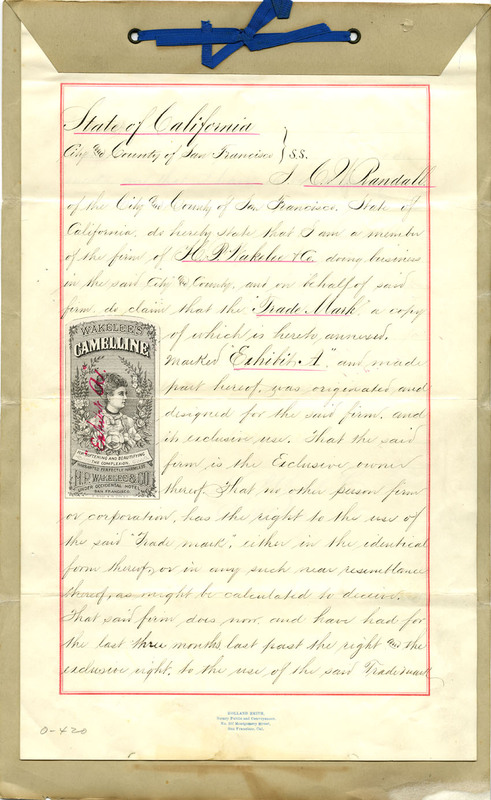 State of California
City and County of San Francisco } S.S.
I C. V. Randall
of the City and County of San Francisco. State of
California, do hereby state that I am a member
of the firm of H. P. Wakelee & Co. doing business
in the said City and County, and on behalf of said
firm do claim that the "Trade Mark" a copy
of which is hereto annexed.
marked "Exhibit A" and made
part hereof, was originated and
designed for the said firm, and
its exclusive use. That the said
firm is the Exclusive owner
thereof. That no other person firm
or corporation, has the right to the use of
the said "Trade mark", either in the identical
form thereof, or in any such near resemblance
thereof, as might be calculated to deceive.
That said firm does now, and have had for
the last three months last past the right and the
exclusive right, to the use of the said Trademark
WAKELEE'S
CAMELLINE
Exhibit A.
FOR SOFTENING AND BEAUTIFYING
THE COMPLEXION
GUARANTEED PERFECTLY HARMLESS
H.P. WAKELEE & CO.
UNDER OCCIDENTAL HOTEL
SAN FRANCISCO.
HOLLAND SMITH,
Notary Public and Conveyancer
Montgomery Street,
San Francisco, Cal.
0-420